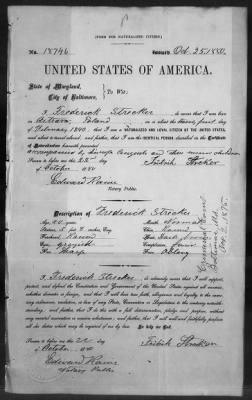 (FORM FOR NATURALIZED CITIZEN.)
No. 18746
Issued Oct. 25, 1880
UNITED STATES OF AMERICA.
State of Maryland,
City of Baltimore,
To Wit:
I, Frederick Strocker, do swear that I was born
in Poland on or about the first day
of February 1840; that I am a NATURALIZED AND LOYAL CITIZEN OF THE UNITED STATES,
and about to travel abroad; and further, that I am the IDENTICAL PERSON described in the Certificate
of Naturalization herewith presented
accompanied by
Sworn to before me this 22nd day
of October 1880
Edward
Notary Public.
Description of Frederick Strocker
Age,
Stature, 5 feet inches, Eng.
Forehead,
Eyes, greyish
Nose, Sharp
Mouth,
Chin, Round
Hair, Dark
Complexion,
Face, Oblong
I, Frederick Strocker, do solemnly swear that I will support,
protect, and defend the Constitution and Government of the United States against all enemies,
whether domestic or foreign; and that I will bear true faith, allegiance and loyalty to the
same, any ordinance, resolution, or law of any State, Convention or Legislature to the contrary notwith-
standing; and further, that I do this with a full determination, pledge, and purpose, without
any mental reservation or evasion whatsoever; and further, that I will well and faithfully perform
all the duties which may be required of me by law. So help me God.
Sworn to before me this 22 day
of October 1880
Edward
Notary Public